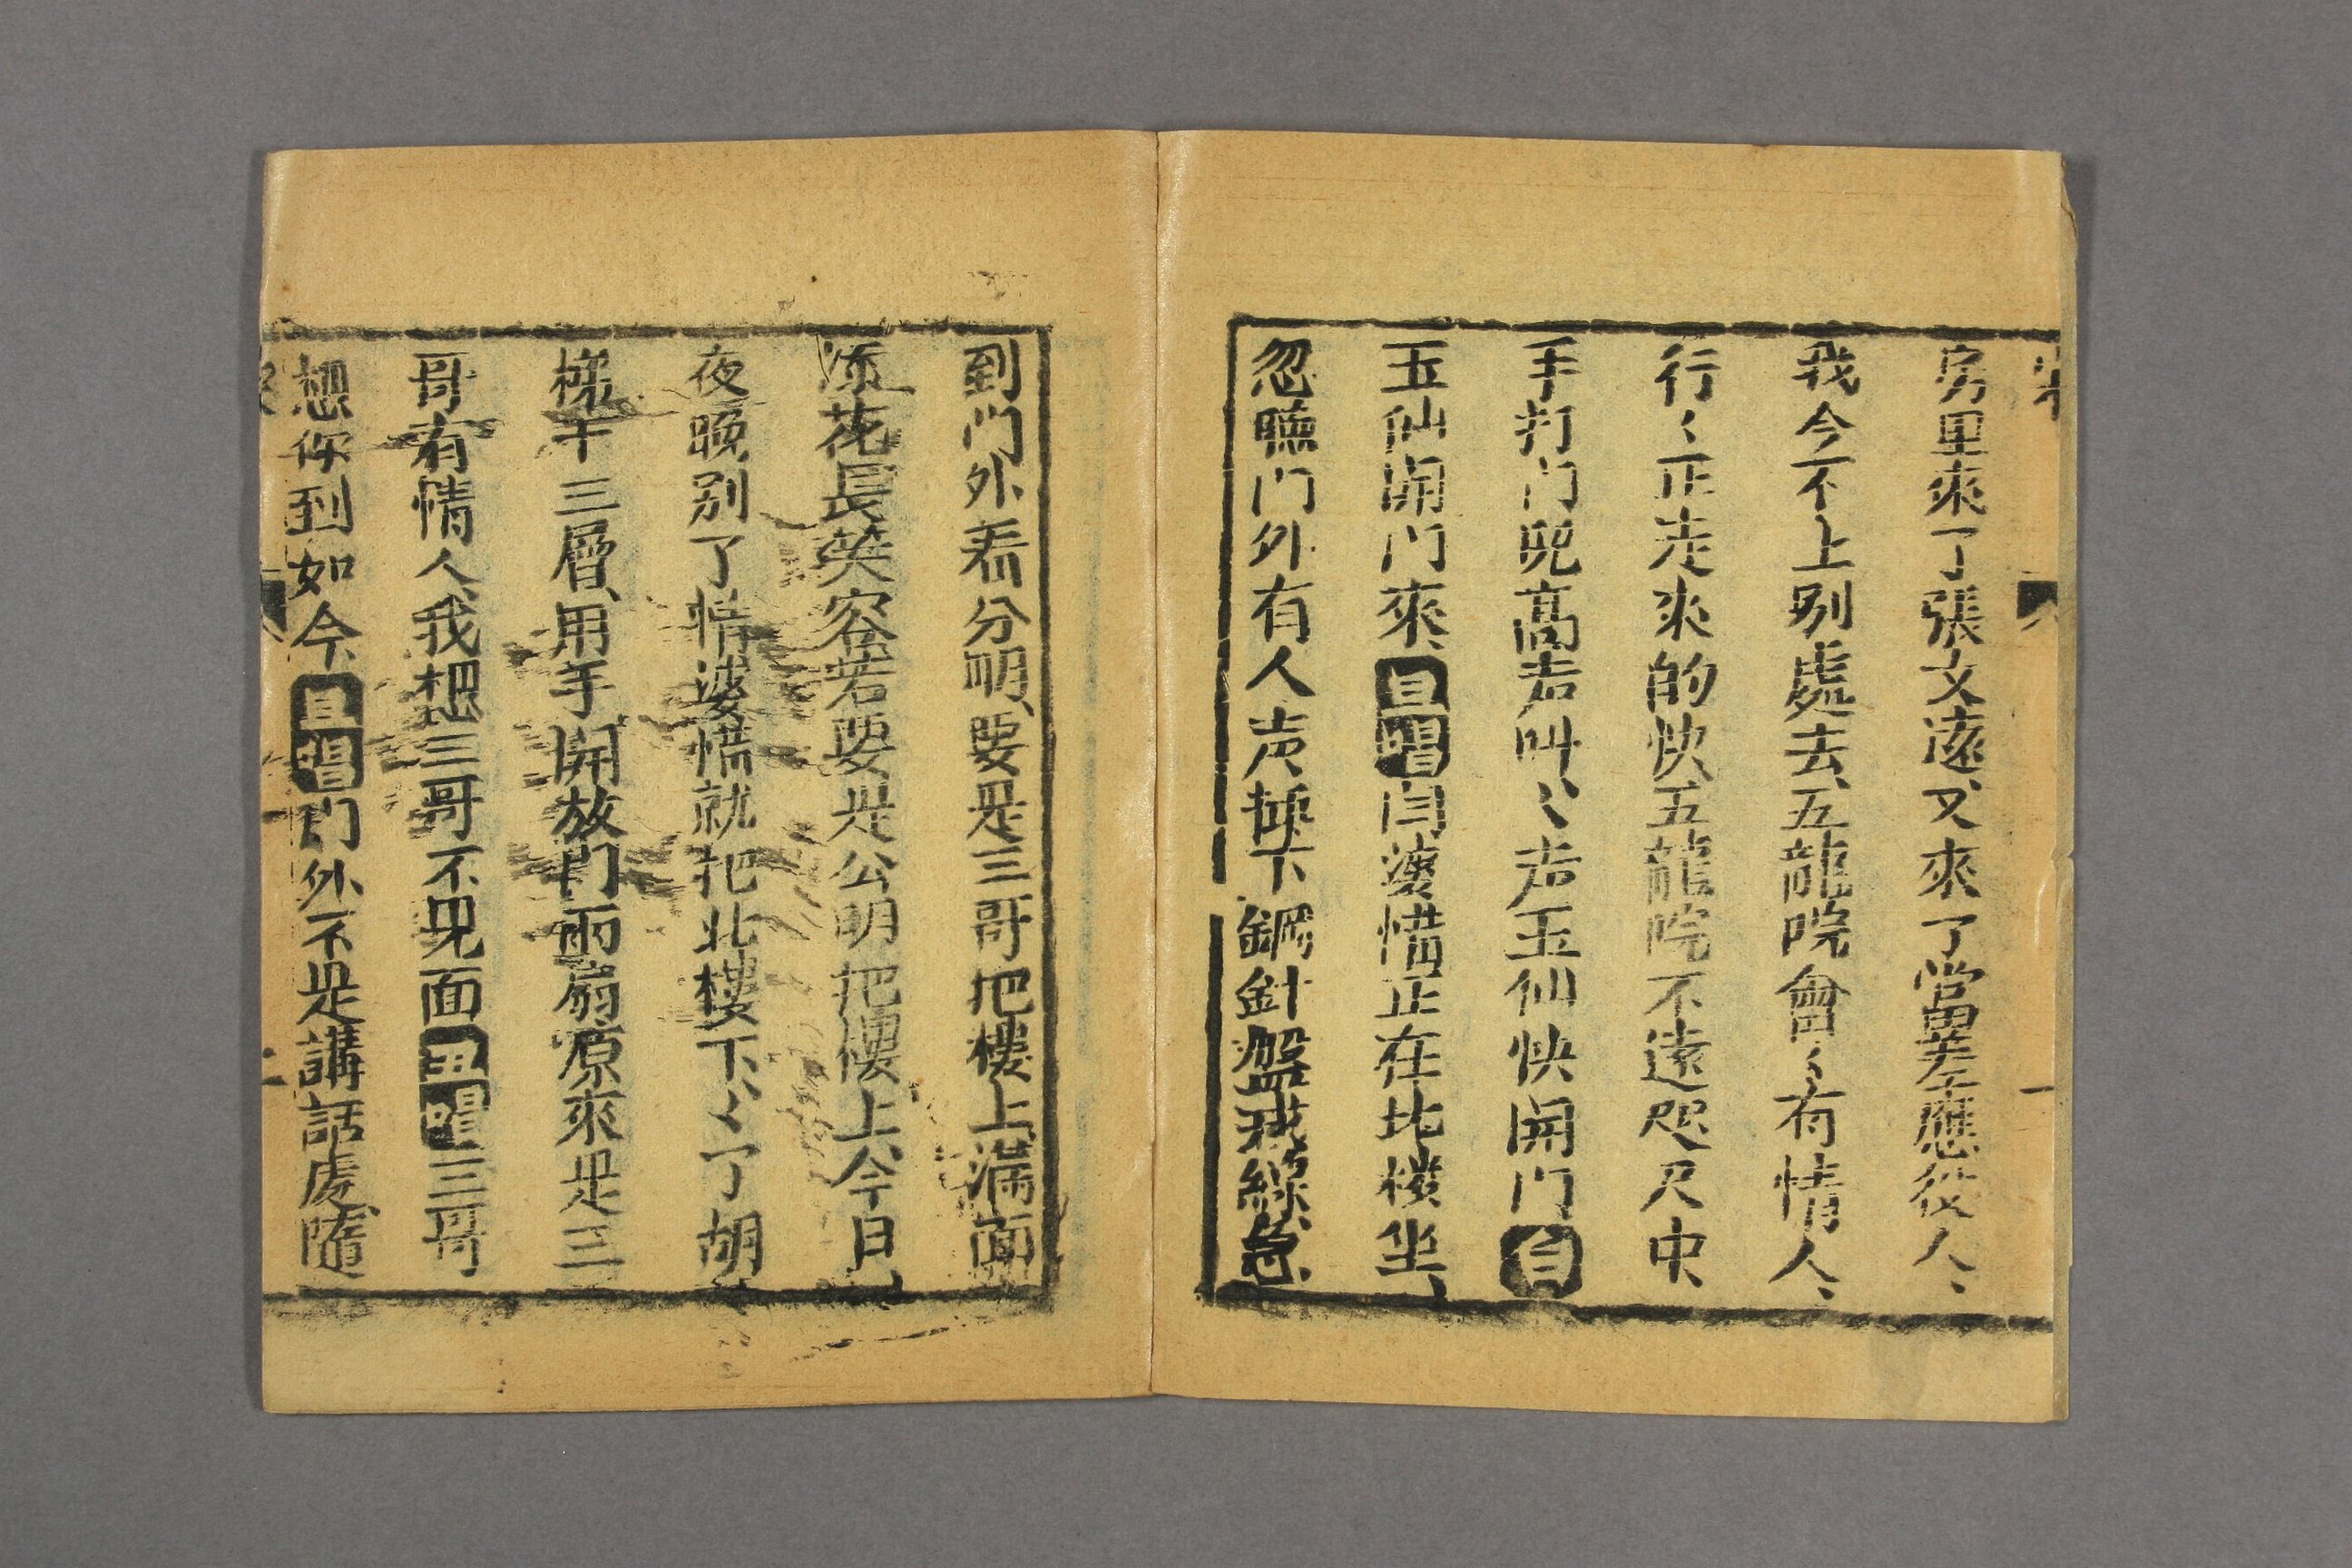 房里來了張文遠、又來了當差應役人、
我今不上别處去、五龍院會〻有情人、
行〻正走來的快、五龍院不遠咫尺中、
手打门児高声叫、〻声玉仙快開门 旦
玉仙開门來、旦唱闫婆惜正在北楼坐、
忽聴门外有人声、挿下鋼針盤我綠、急
到门外看分明、要是三哥把樓上、滿面
添花長英容、若要是公明把樓上、今日
夜晚别了情、婆惜就把北樓下、〻了胡
梯十三層、用手開放门两扇、原來是三
哥有情人、我想三哥不見面 丑唱 三哥
想你到如今、旦唱门外不是講話處、隨